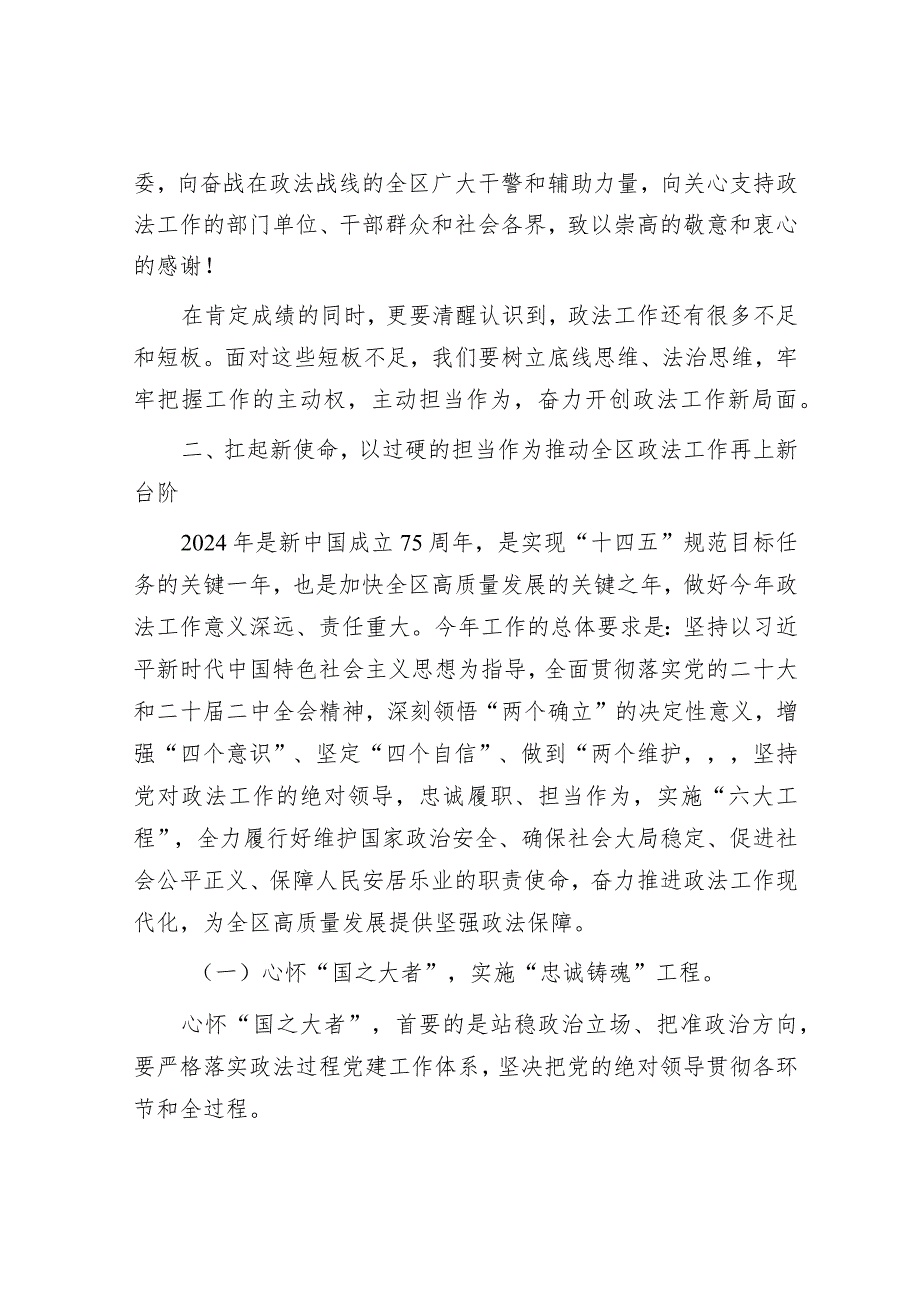 委，向奋战在政法战线的全区广大干警和辅助力量，向关心支持政
法工作的部门单位、干部群众和社会各界，致以崇高的敬意和衷心
的感谢！
在肯定成绩的同时，更要清醒认识到，政法工作还有很多不足
和短板。面对这些短板不足，我们要树立底线思维、法治思维，牢
牢把握工作的主动权，主动担当作为，奋力开创政法工作新局面。
二、扛起新使命，以过硬的担当作为推动全区政法工作再上新
台阶
2024年是新中国成立75周年，是实现“十四五”规范目标任
务的关键一年，也是加快全区高质量发展的关键之年，做好今年政
法工作意义深远、责任重大。今年工作的总体要求是：坚持以习近
平新时代中国特色社会主义思想为指导，全面贯彻落实党的二十大
和二十届二中全会精神，深刻领悟“两个确立”的决定性意义，增
强“四个意识”、坚定“四个自信”、做到“两个维护，，，坚持
党对政法工作的绝对领导，忠诚履职、担当作为，实施“六大工
程”，全力履行好维护国家政治安全、确保社会大局稳定、促进社
会公平正义、保障人民安居乐业的职责使命，奋力推进政法工作现
代化，为全区高质量发展提供坚强政法保障。
（一）心怀“国之大者”，实施“忠诚铸魂”工程。
心怀“国之大者”，首要的是站稳政治立场、把准政治方向，
要严格落实政法过程党建工作体系，坚决把党的绝对领导贯彻各环
节和全过程。